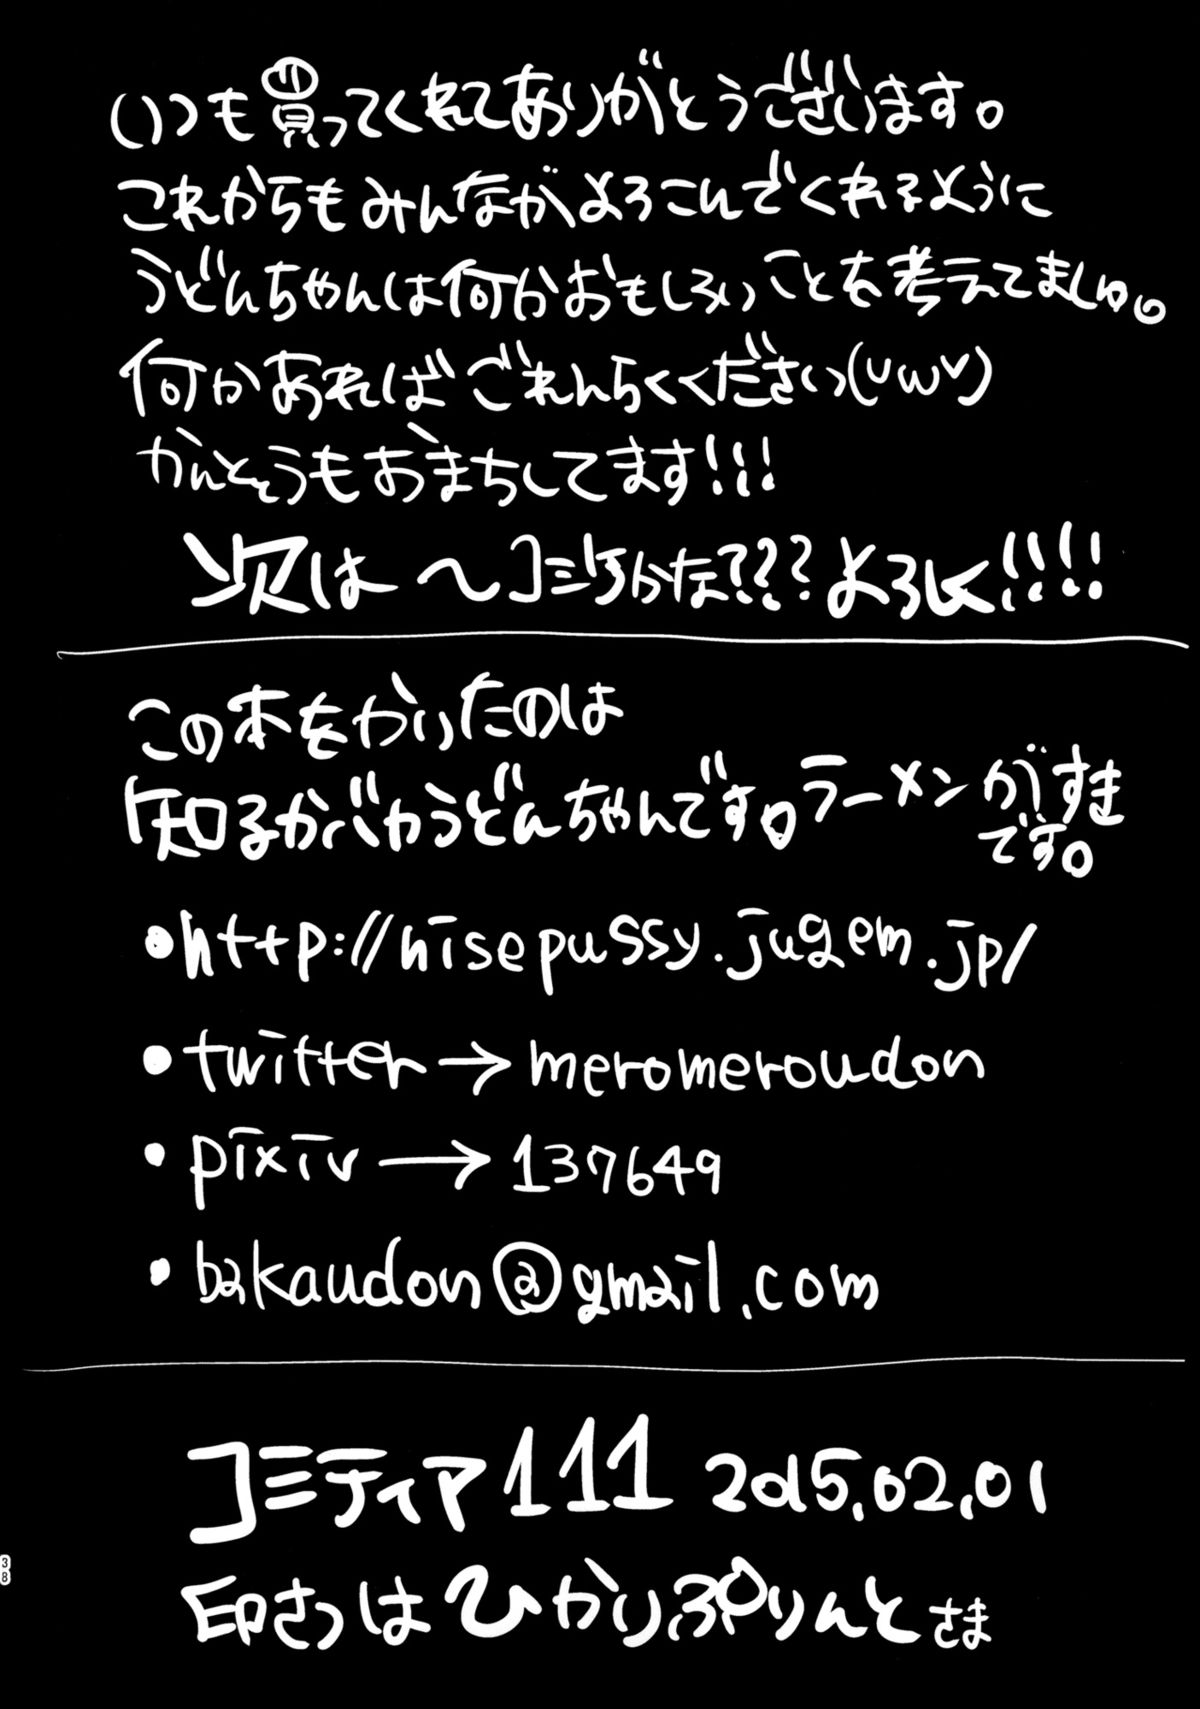 いつも買ってくれてありがとうございます。
これからもみんながよろこんでくれるように
うどんちゃんは何かおもしろいことを考えてましゅ。
何かあればごれんらくください(UωU)
かんそうもおまちしてます!!!
次は〜コミ1かな???よろしく!!!!
この本をかいたのは
知るかバカうどんちゃんです。ラーメンがすき
です。
•http://nisepussy.jugem.jp/
•twitter→meromeroudon
•pixiv→137649
•bakaudon@gmail.com
コミティア111 2015.02.01
印さつはひかりぷりんとさま
38